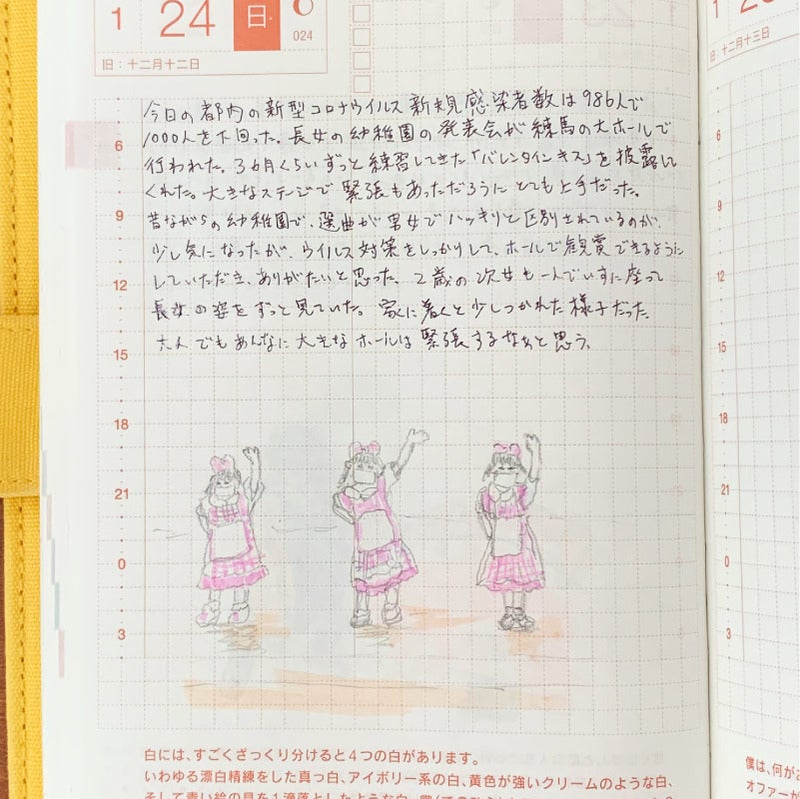 1 24 日
024
旧：十二月十二日
今日の都内の新型コロナウイルス新規感染者数は986人で
1000人を下回った。長女の幼稚園の発表会が練馬の大ホールで
行われた。3ヵ月くらいずっと練習してきた「バレンタインキス」を披露して
くれた。大きなステージで緊張もあっただろうにとても上手だった。
昔ながらの幼稚園で、選曲が男女でハッキリと区別されているのが、
少し気になったが、ウイルス対策をしっかりして、ホールで観賞できるように
していただき、ありがたいと思った。2歳の次女も一人でいすに座って
長女の姿をずっと見ていた。家に着くと少しつかれた様子だった。
大人でもあんなに大きなホールは緊張するなぁと思う。
6
9
12
15
18
21
0
3
白には、すごくざっくり分けると4つの白があります。
いわゆる漂白精練をした真っ白、アイボリー系の白、黄色が強いクリームのような白、
そして青い絵の具を1滴落としたような白。
1
旧：十二月十三日
6
9
12
15
18
21
0
3
僕は、何が
オファーが